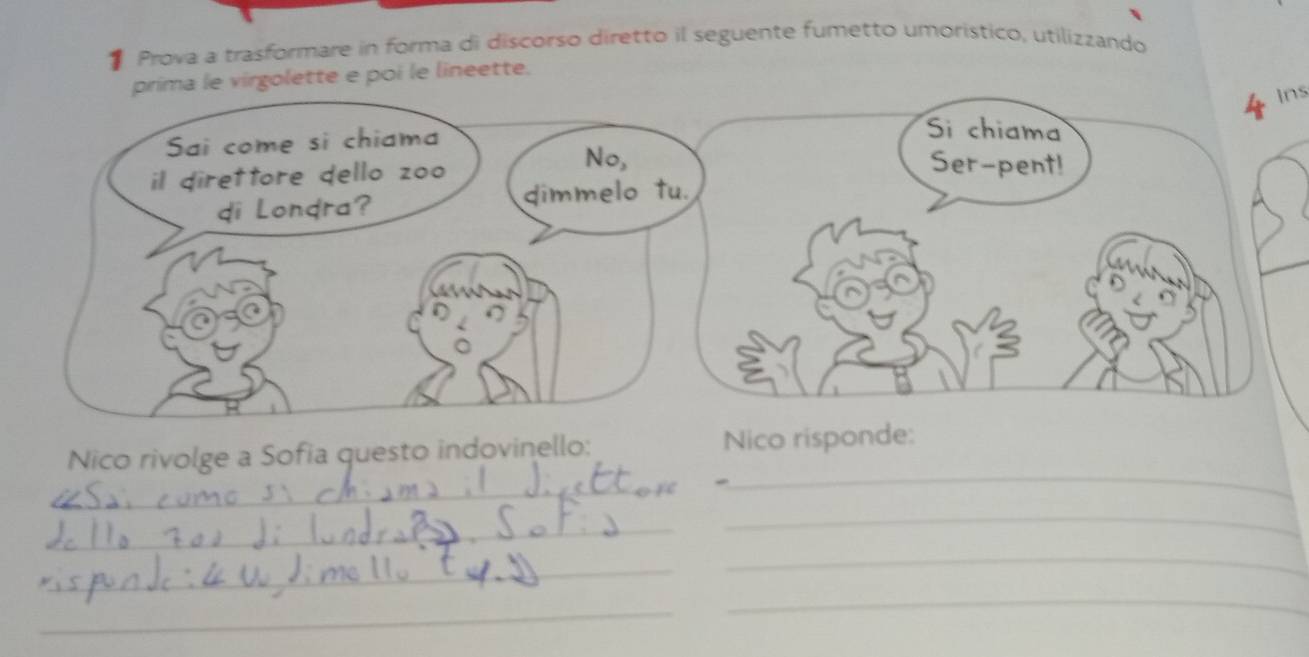 1 Prova a trasformare in forma di discorso diretto il seguente fumetto umoristico, utilizzando
prima le virgolette e poi le lineette.
4 Ins
Sai come si chiama
il direttore dello zoo
di Londra?
No,
dimmelo tu.
Si chiama
Ser-pent!
Nico rivolge a Sofia questo indovinello:
«Sai come si chiama il direttore
dello zoo di londra?». Sofia
risponde: « dimello tu.»
Nico risponde:
-